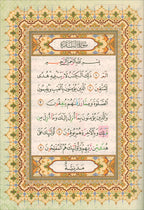 سُورَةُ الْبَقَرَةِ
بِسْمِ اللَّهِ الرَّحْمَٰنِ الرَّحِيمِ
الٓمٓ ۝ ذَٰلِكَ الْكِتَٰبُ لَا رَيْبَ فِيهِ هُدًى
لِّلْمُتَّقِينَ ۝ الَّذِينَ يُؤْمِنُونَ بِالْغَيْبِ
وَيُقِيمُونَ الصَّلَوٰةَ وَمِمَّا رَزَقْنَٰهُمْ يُنفِقُونَ ۝
وَالَّذِينَ يُؤْمِنُونَ بِمَا أُنزِلَ إِلَيْكَ وَمَا أُنزِلَ
مِن قَبْلِكَ وَبِالْآخِرَةِ هُمْ يُوقِنُونَ ۝ أُولَٰئِكَ عَلَىٰ
هُدًى مِّن رَّبِّهِمْ وَأُولَٰئِكَ هُمُ الْمُفْلِحُونَ ۝